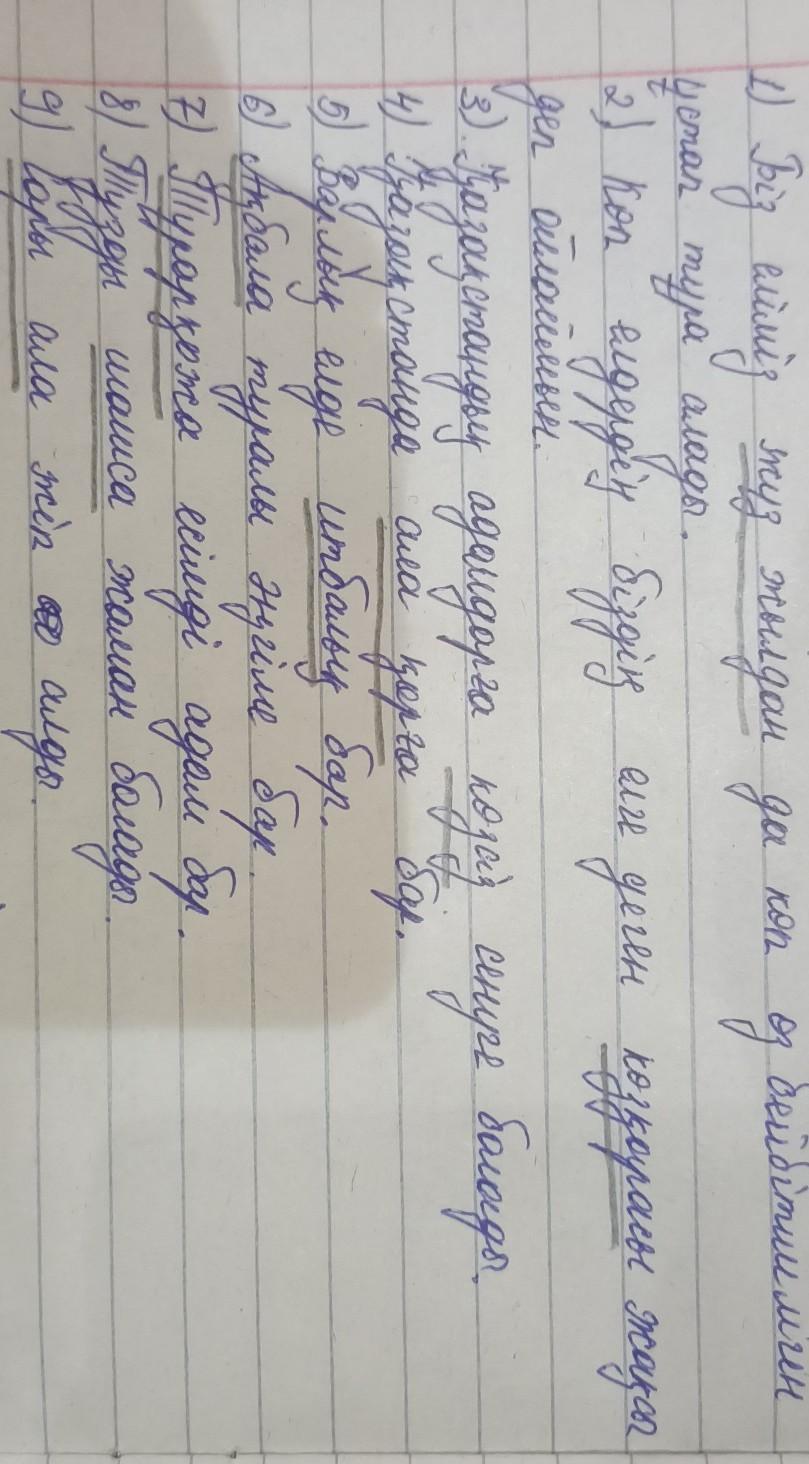 1) Біз еліміз жүз жылдан да көп өз бейбітшілігін
ұстап тұра алады.
2) Көп елдердің біздің елге деген көзқарасы жақсы
деп ойлаймын.
3) Қазақстандық адамдарға көзсіз сенуге болады.
4) Қазақстанда ала қарға бар.
5) Барлық елде итбалық бар.
6) Ақбала туралы әңгіме бар.
7) Тұрарқожа есімді адам бар.
8) Тұзды шашса жаман болады.
9) Қары ала жіп алды.